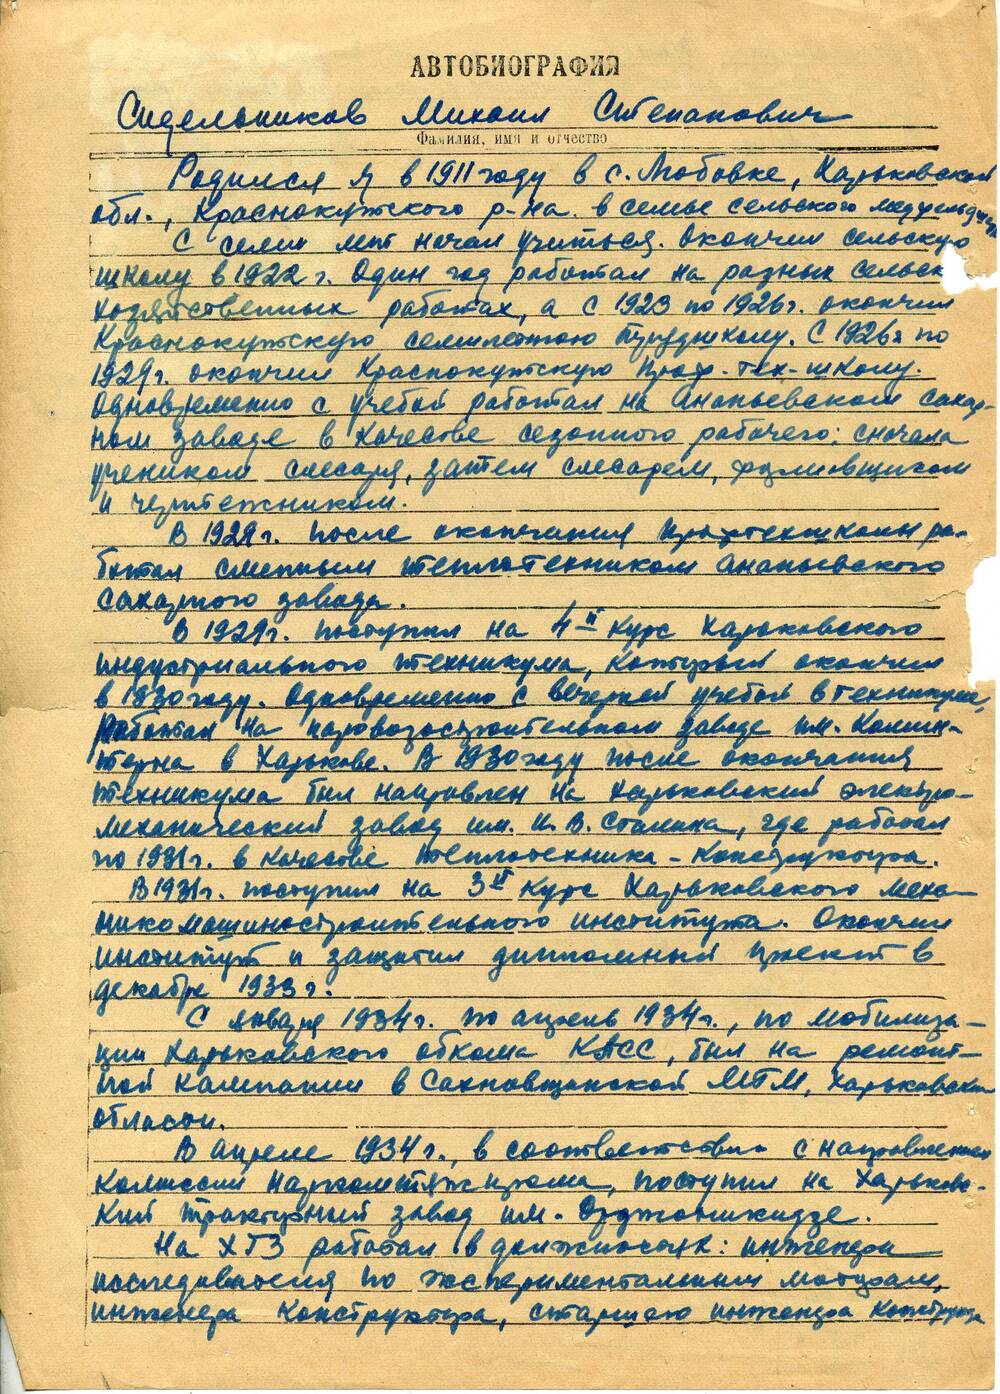 АВТОБИОГРАФИЯ
Сидельников Михаил Степанович
Фамилия, имя и отчество
Родился я в 1911 году в с. Любовке, Харьковской
обл., Краснокутского р-на в семье сельского медфельдшера
С семи лет начал учиться. Окончил сельскую
школу в 1922 г. Один год работал на разных сельск
хозяйственных работах, а с 1923 по 1926 г. окончил
Краснокутскую семилетнюю трудшколу. С 1926 г. по
1929 г. окончил Краснокутскую проф-тех-школу.
Одновременно с учебой работал на Ананьевском сахар-
ном заводе в качестве сезонного рабочего: сначала
учеником слесаря, затем слесарем, формовщиком
и чертежником.
В 1929 г. после окончания профтехшколы ра-
ботал сменным теплотехником Ананьевского
сахарного завода.
В 1929 г. поступил на 4й курс Харьковского
индустриального техникума, который окончил
в 1930 году. Одновременно с вечерней учебой в техникуме,
работал на паровозостроительном заводе им. Комин-
терна в Харькове. В 1930 году после окончания
техникума был направлен на Харьковский электро-
механический завод им. И. В. Сталина, где работал
по 1931 г. в качестве теплотехника-конструктора.
В 1931 г. поступил на 3й курс Харьковского меха-
никомашиностроительного института. Окончил
институт и защитил дипломный проект в
декабре 1933 г.
С января 1934 г. по апрель 1934 г., по мобилиза-
ции Харьковского обкома, был на ремонт-
ной кампании в Сахновщинской МТМ, Харьковской
области.
В апреле 1934 г., в соответствии с направлением
комиссии Наркомтяжпрома, поступил на Харьковс-
кий тракторный завод им. Орджоникидзе.
На ХТЗ работал в должностях: инженера
исследователя по экспериментальным моторам,
инженера конструктора, старшего инженера конструктора